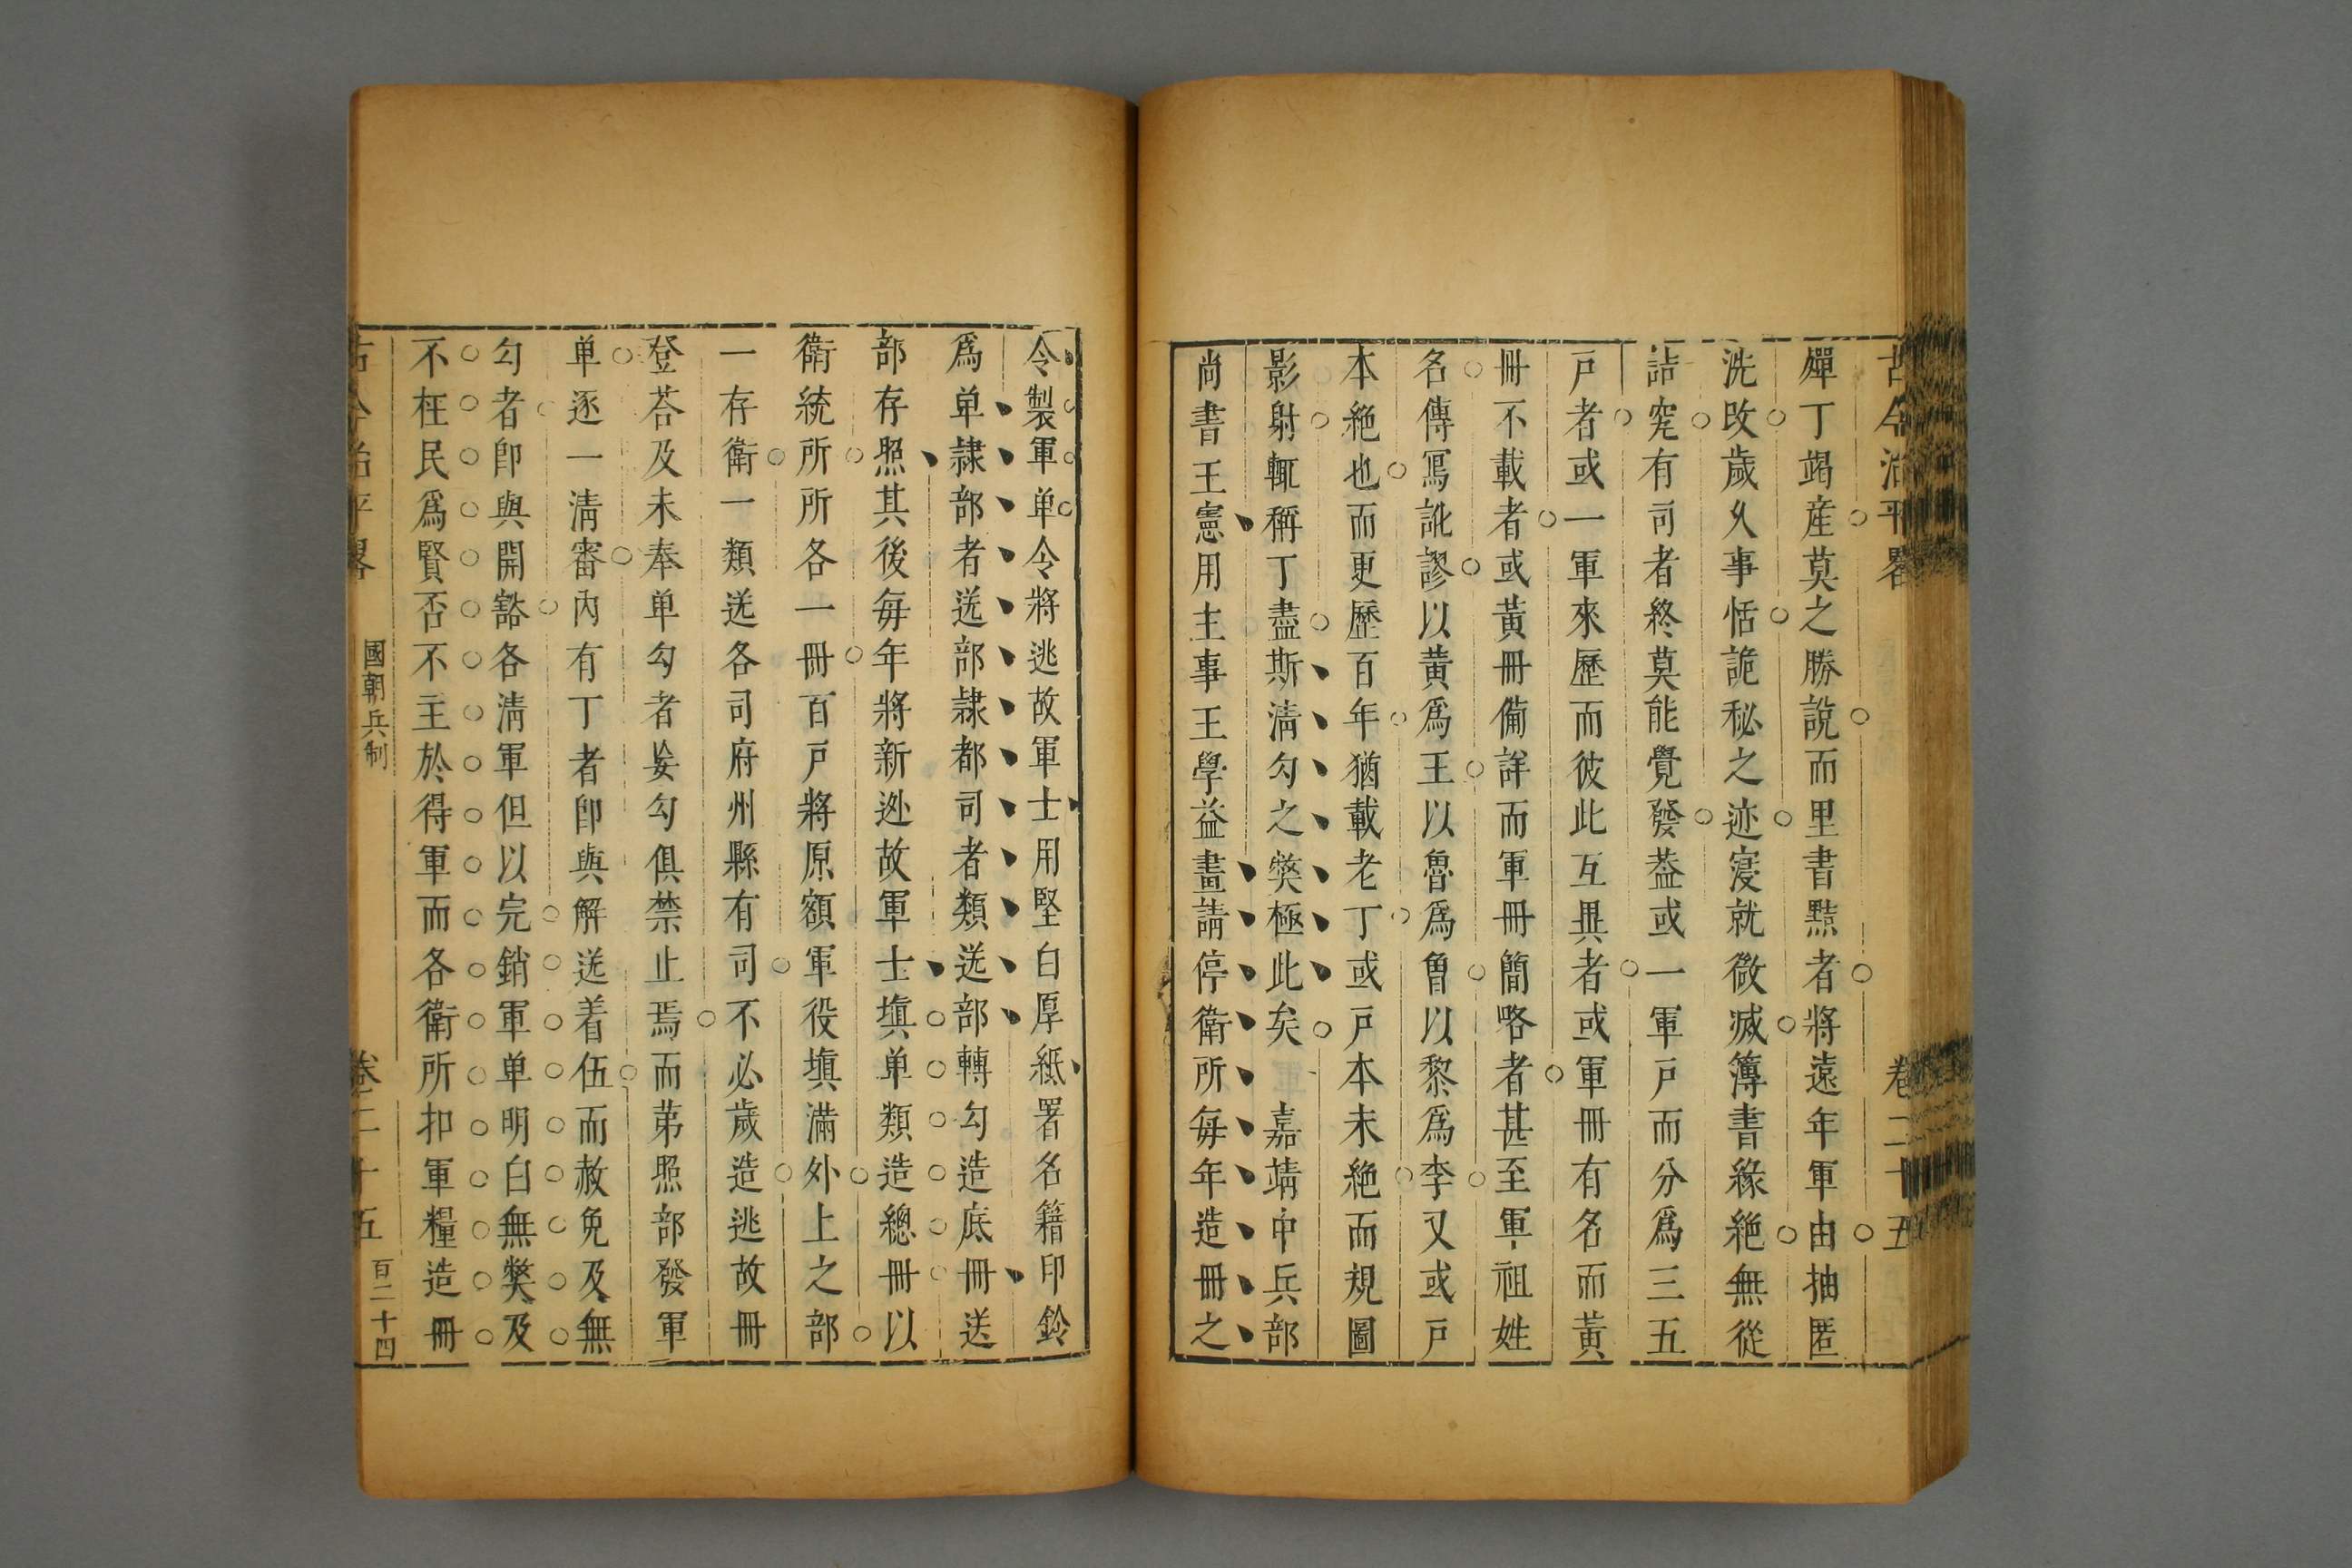 古今治平畧 卷二十五
殫丁竭産莫之勝說而里書黠者將遠年軍由抽匿
洗改歲久事恬詭秘之迹寖就微滅簿書緣絶無從
詰究有司者終莫能覺發葢或一軍戸而分爲三五
戸者或一軍來歷而彼此互異者或軍冊有名而黃
冊不載者或黃冊備詳而軍冊簡略者甚至軍祖姓
名傳冩訛謬以黃爲王以魯爲曾以黎爲李又或戸
本絶也而更歷百年猶載老丁或戸本未絶而規圖
影射輒稱丁盡斯清勾之獘極此矣 嘉靖中兵部
尚書王憲用主事王學益畫請停衛所每年造冊之
令製軍单令將逃故軍士用堅白厚紙署名籍印鈐
爲单隷部者送部隷都司者類送部轉勾造底冊送
部存照其後每年將新逃故軍士填单類造總冊以
衛統所所各一冊百戸將原額軍役填滿外上之部
一存衛一類送各司府州縣有司不必歲造逃故冊
登荅及未奉单勾者妄勾俱禁止焉而苐照部發軍
单逐一清審內有丁者卽與解送着伍而赦免及無
勾者卽與開豁各清軍但以完銷軍单明白無獘及
不枉民爲賢否不主於得軍而各衛所扣軍糧造冊
古今治平畧 國朝兵制 卷二十五 百二十四